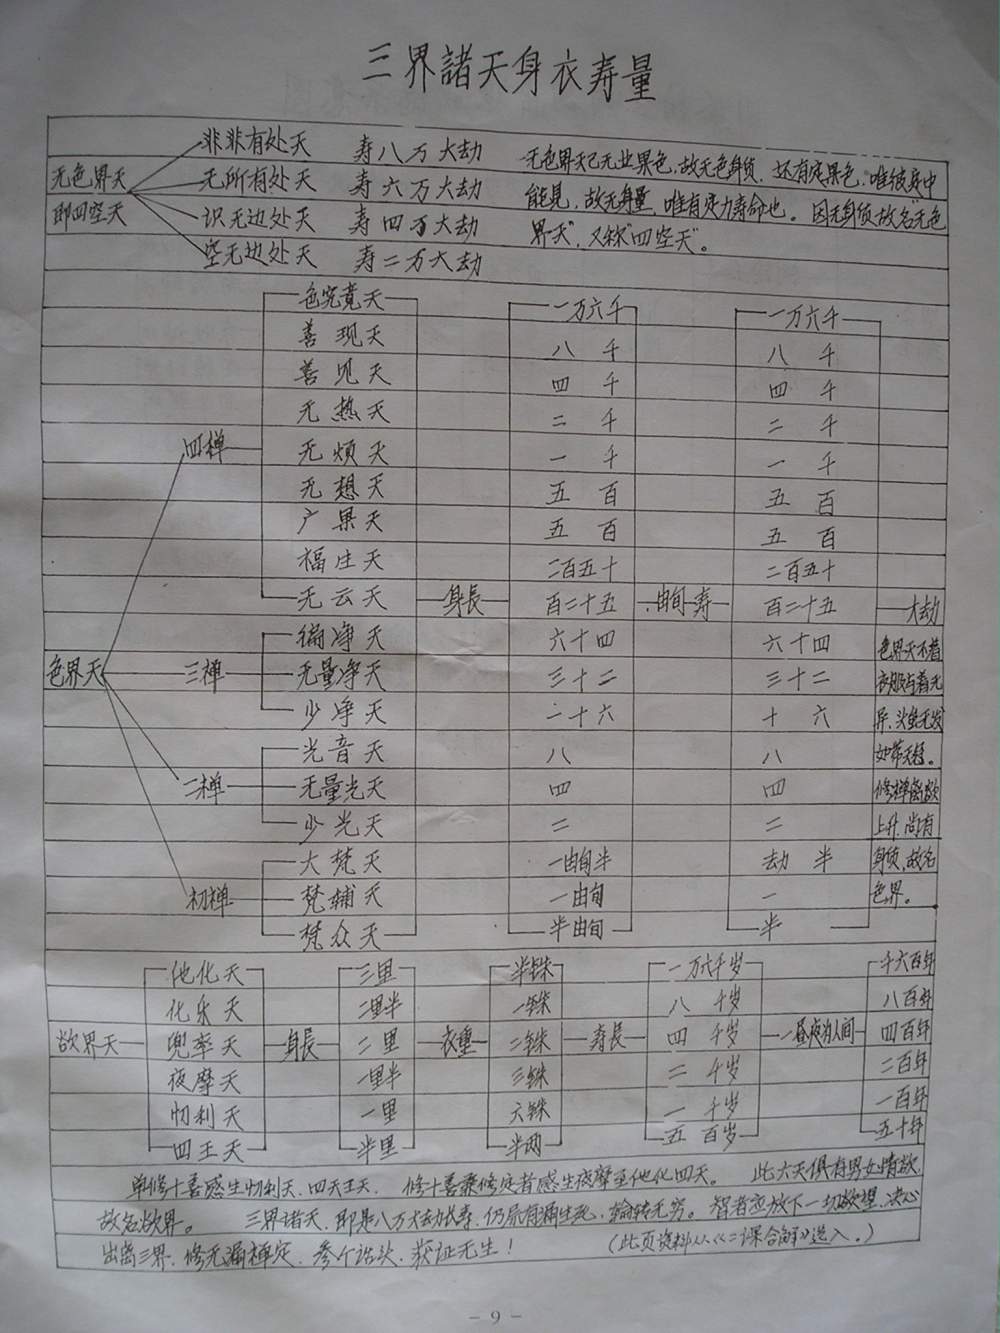 三界諸天身衣寿量
非非有处天 寿八万大劫 无色界天已无业果色,故无色身质,还有定果色,唯彼定中
无色界天 无所有处天 寿六万大劫 能見,故无身量,唯有定力寿命也。因无身质故名"无色
即四空天 识无边处天 寿四万大劫 界天",又称"四空天"。
空无边处天 寿二万大劫
色究竟天 一万六千 一万六千
善现天 八千 八千
善见天 四千 四千
无热天 二千 二千
四禅 无烦天 一千 一千
无想天 五百 五百
广果天 五百 五百
福生天 二百五十 二百五十
无云天 身長 百二十五 由旬寿 百二十五 大劫
徧净天 六十四 六十四 色界天不着
色界天 三禅 无量净天 三十二 三十二 衣服与着无
少净天 一十六 十六 异、头虽无发
光音天 八 八 如带天冠。
二禅 无量光天 四 四 修禅离欲
少光天 二 二 上升,尚有
大梵天 一由旬半 劫半 身质,故名
初禅 梵辅天 一由旬 一 色界。
梵众天 半由旬 半
他化天 三里 半铢 一万六千岁 千六百年
化乐天 二里半 一铢 八千岁 八百年
欲界天 兜率天 身長 二里 衣重 二铢 寿長 四千岁 一昼夜为人间 四百年
夜摩天 一里半 三铢 二千岁 二百年
忉利天 一里 六铢 一千岁 一百年
四王天 半里 半两 五百岁 五十年
单修十善感生忉利天、四天王天、修十善兼修定者感生夜摩至他化四天。 此六天俱有男女情欲,
故名欲界。 三界诸天,即是八万大劫长寿,仍属有漏生死,轮转无穷。智者应放下一切欲望,决心
出离三界、修无漏禅定、参个话头、获证无生! (此页资料从《二课合解》选入。)
- 9 -